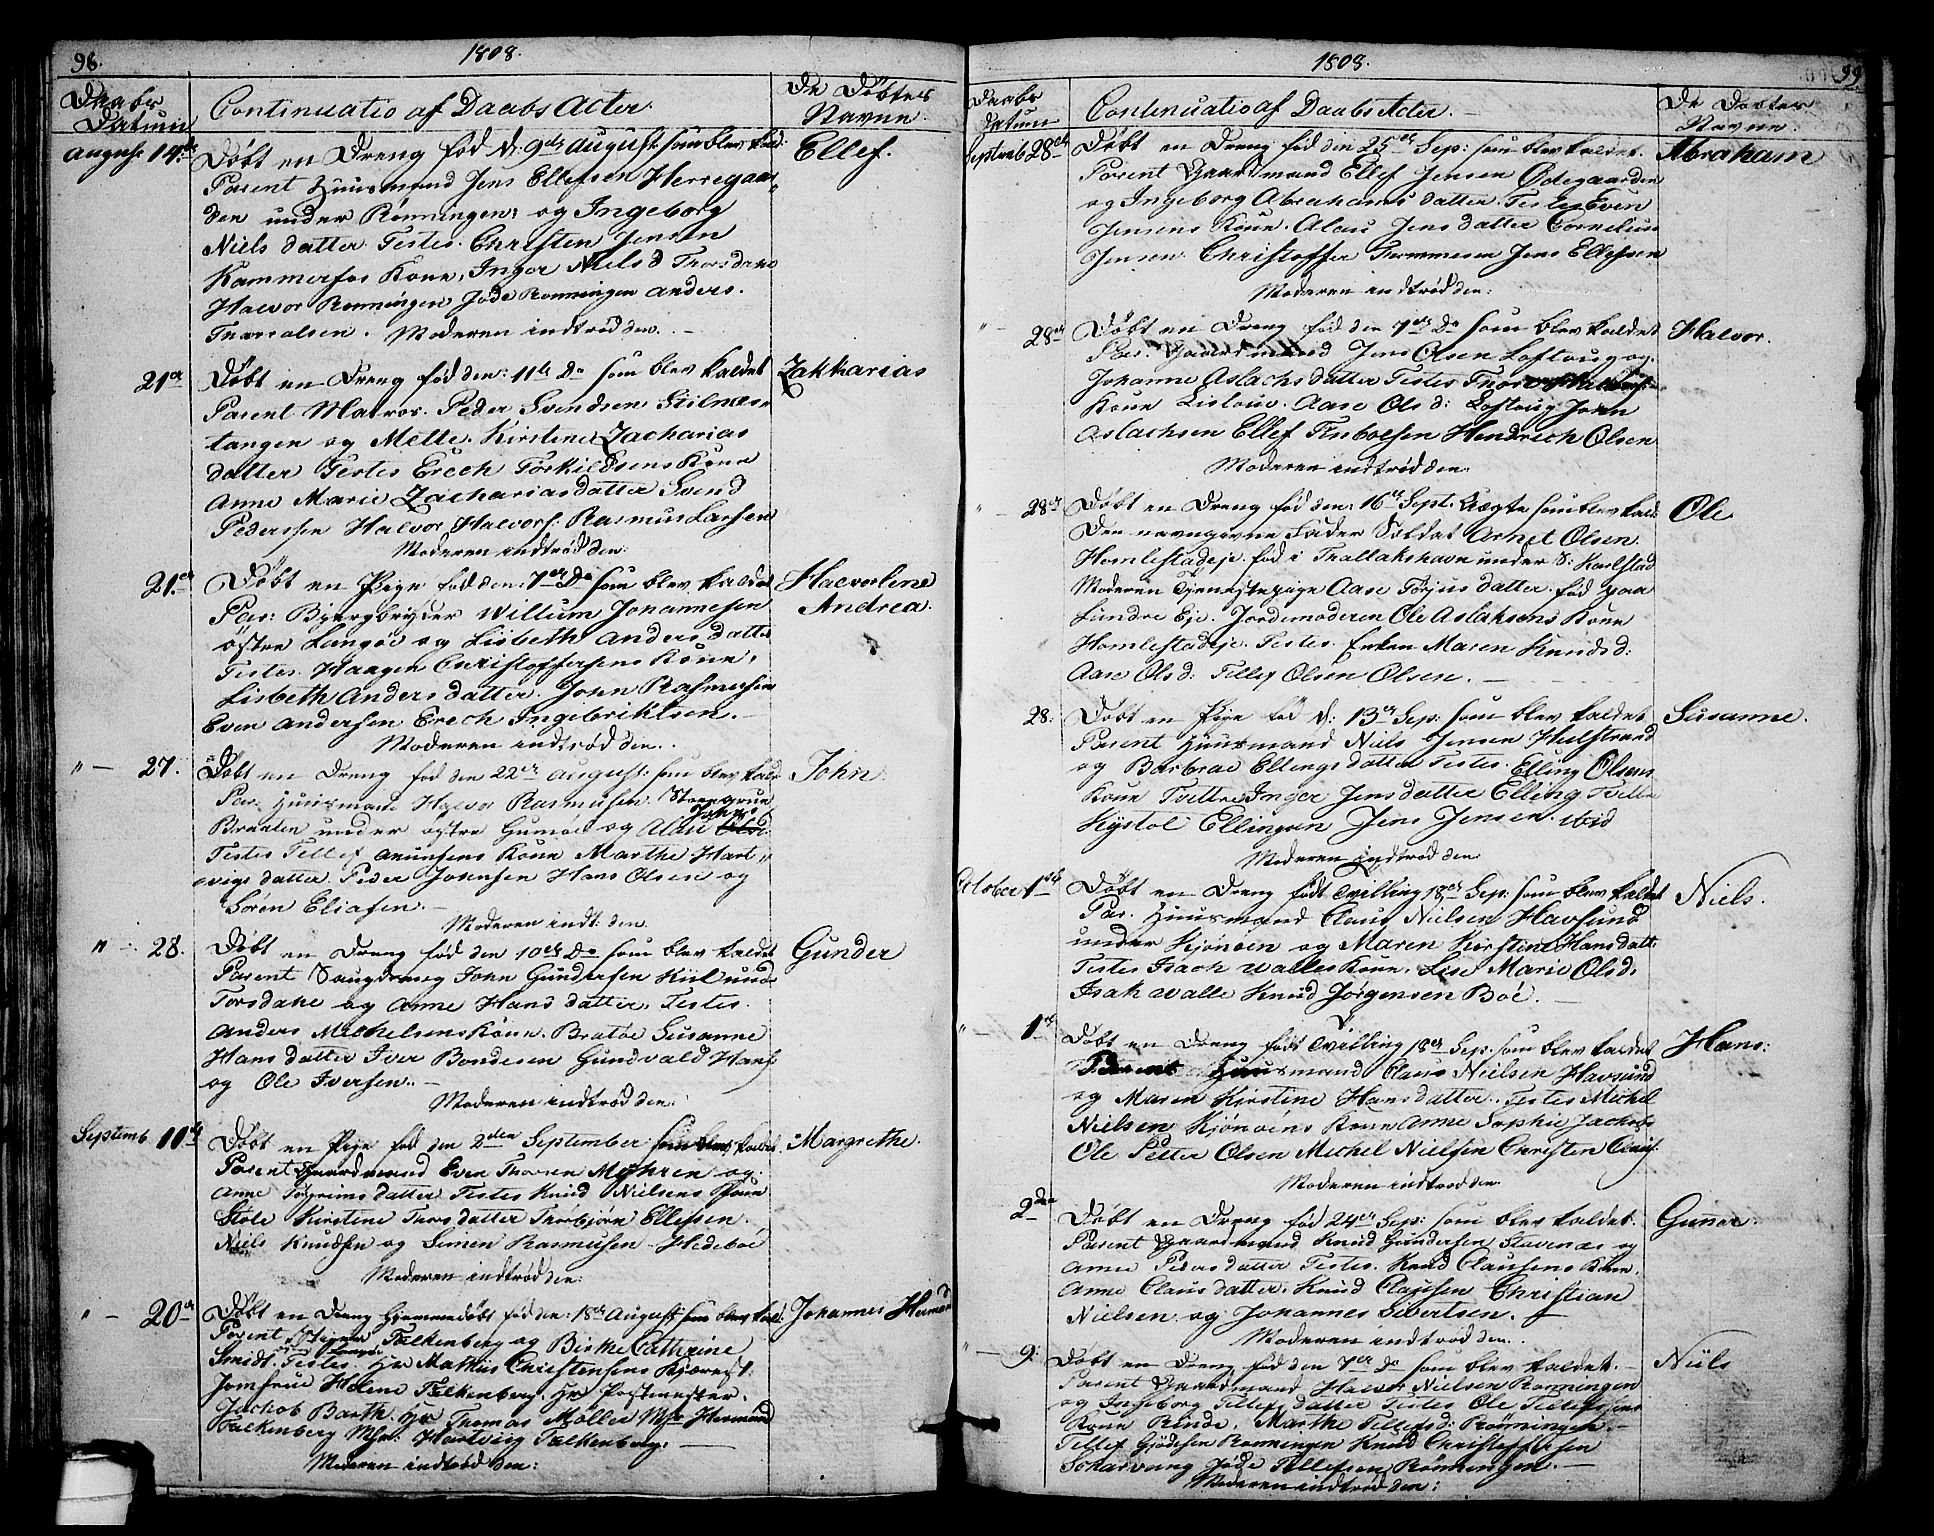 98.
1808.
Daabs Datum
Continuatio af Daabs Acter.
De Döbtes Navne.
August 14de
Döbt en Dreng fød d. 9de August som blev kald:
Ellef.
Parent Huusmand Jens Ellefsen Herregaar-
den under Rönningen; og Ingeborg
Niels datter. Testes. Christen Jensen
Kammerfos Kone, Inger Niels d Thorsdahl
Halvor Rönningen Jöde Rönningen Anders.
Moderen indtrød den. -
21de
Döbt en Dreng fød den: 11te Do som blev kaldet
Zakkarias
Parent Matros. Peder Svendsen Stilnæs-
tangen og Mette. Kirstine Zacharias
datter Testes Erech Torkildsens Kone
Anne Marie Zachariasdatter Svend
Pederssen Halvor Halvors: Rasmus Larsen
Moderen indtrød den:
21de
Döbt en Pige fød den: 7de Do som blev kaldet
Halvorline
Andrea.
Par: Bjergbryder Willum Johannesen
østre Langöe og Lisbeth Anders datter
Testes. Haagen Christoffersens Kone,
Lisbeth Anders datter. John Rasmusen
Even Andersen Erech Ingebriktsen. -
Moderen indtrød den.
" - 27.
Döbt en Dreng fød den 22de August: som blev kald:
John
Par. Huusmand Halvor Rasmusen. Steengrun
Braaten under østre Gumöe og Alau Johns d:
Testes Tellef Amunsens Kone Marthe Hart-
vigs datter. Peder Johnsen Hans Olsen og
Sören Eliasen. -
Moderen indt: den.
" - 28.
Döbt en Dreng fød den 10de Do som blev kaldet
Gunder
Parent Saugdreng John Gundersen Kiil und:
Torsdahl og Anne Hans datter, Testes.
Anders Michelsens Kone. Bratöe Susanne
Hans datter Iver Bondesen Gundvald Hans:
og Ole Iversen. -
Moderen indtrød den:
Septemb 11te
Döbt en Pige fød den 2den September som blev kaldet
Margrethe.
Parent Gaardmand Even Thorsen Mohren og
Anne Torgrims datter Testes Knud Nielsens Kone
Stole Kirstine Thors datter Thorbjørn Ellefsen.
Niels Knudsen og Simen Rasmusen Hedeboe
Moderen indtrød den:
" - 20de
Döbt en Dreng Hjemmedöbt fød den: 18de August som blev kald:
Johannes Herman
Parent Falkenberg og Birthe Cathrine
Smidt. Testes. Hr Mathiis Christensens Kjærest:
Jomfrue Helene Falkenberg. Hr Postmester.
Jachob Barth. Hr Thomas Möller Mr Hermand
Falkenberg Mr: Hartvig Falkenberg. -
Moderen indtrød den:
1808.
99.
Daabs datum
Continuatio af Daabs Acter. -
De Döbtes Navne.
Septemb 28de
Döbt en Dreng fød den 25de Sep: som blev kaldet.
Abraham
Parent Gaardmand Ellef Jensen Ødegaarden
og Ingeborg Abrahams datter. Testes Even
Jensens Kone. Alau Jens datter Cornelius
Jensen. Christoffer Thommesen Jens Ellefsen
Moderen indtrød den:
" - 28de
Döbt en Dreng fød den 7de Do som blev kaldet
Halvor.
Par. Gaardmand Jens Olsen Loftoug og.
Johanne Aslachs datter Testes Thore
Kone Lisloue. Aase Ols d: Loftoug John
Aslachsen Ellef Tinboesen Hendrich Olsen
Moderen indtrød den:
" - 28de
Döbt en Dreng fød den: 16de Sept. Uægte som blev kald:
Ole
Den navngivne Fader Soldat Arnet Olsen
Homlestadeje. fød i Trallakshavn under S: Karlstad
Moderen Tjenestepige Aase Torjus datter. fød paa
Lundre Eje. Jordemoderen Ole Aslaksens Kone
Homlestadeje. Testes. Enken Maren Knuds d:
Aase Ols d: Tellef Olsen Olsen. -
28.
Döbt en Pige fød d: 13de Sep: som blev kaldet
Susanne.
Parent Huusmand Niels Jensen Heilstrand
og Barbrae Ellings datter Testes. Elling Olsens
Kone Tvitter Inger Jens datter Elling Tvitter
Kystol Ellingsen Jens Jensen. ibid
Moderen indtrød den:
October 1ste
Döbt en Dreng født Tvilling 18de Sep: som blev kaldet
Niels.
Par. Huusmand Claus Nielsen Havsund
under Kjönöen og Maren Kirstine Hans datt:
Testes Isach Walles Kone. Lise Marie Ols d.
Isak Walle Knud Jörgensen Böe. -
" - 1ste
Döbt en Dreng født Tvilling 18de Sep: som blev kaldet
Hans:
Parent Huusmand Claus Nielsen Havsund
og Maren Kirstine Hans datter. Testes Michel
Nielsen Kjönöens Kone Anne Sophie Jachobs
Ole Petter Olsen Michel Nielsen Christen Christ:
Moderen indtrød den.
2den
Döbt en Dreng fød 24de Sep: som blev kaldet.
Guner.
Parent Gaardmand Knud Gundersen Stavenæs og
Anne Peders datter Testes. Knud Clausens Kone.
Anne Claus datter. Knud Clausen Christian
Nielsen og Johannes Sivertsen.
Moderen indtrød den.
" - 9:
Döbt en Dreng fød den 7de Do som blev kaldet. -
Niils
Parent Gaardmand Halvor Nielsen Rönningen
og Ingeborg Tellefs datter Testes Ole Tellefsens
Kone Rinde, Marthe Tellefs d: Rönningen. -
Tellef Gjödesen Rönningen Knud Christoffersen
Skarvang Jöde Tellefsen Rönningen. -
Moderen indtrød den: